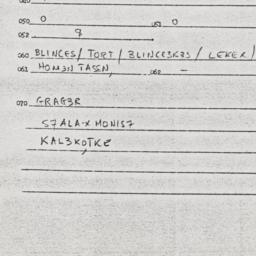 050 O 051 O
052 9
060 BLINCES / TORT / BLINCESKES / LEKEK /
061 HOMENTASEN, 062 –
070 GRAGER
S7ALA-X MONIS7
KAL3KOTKE